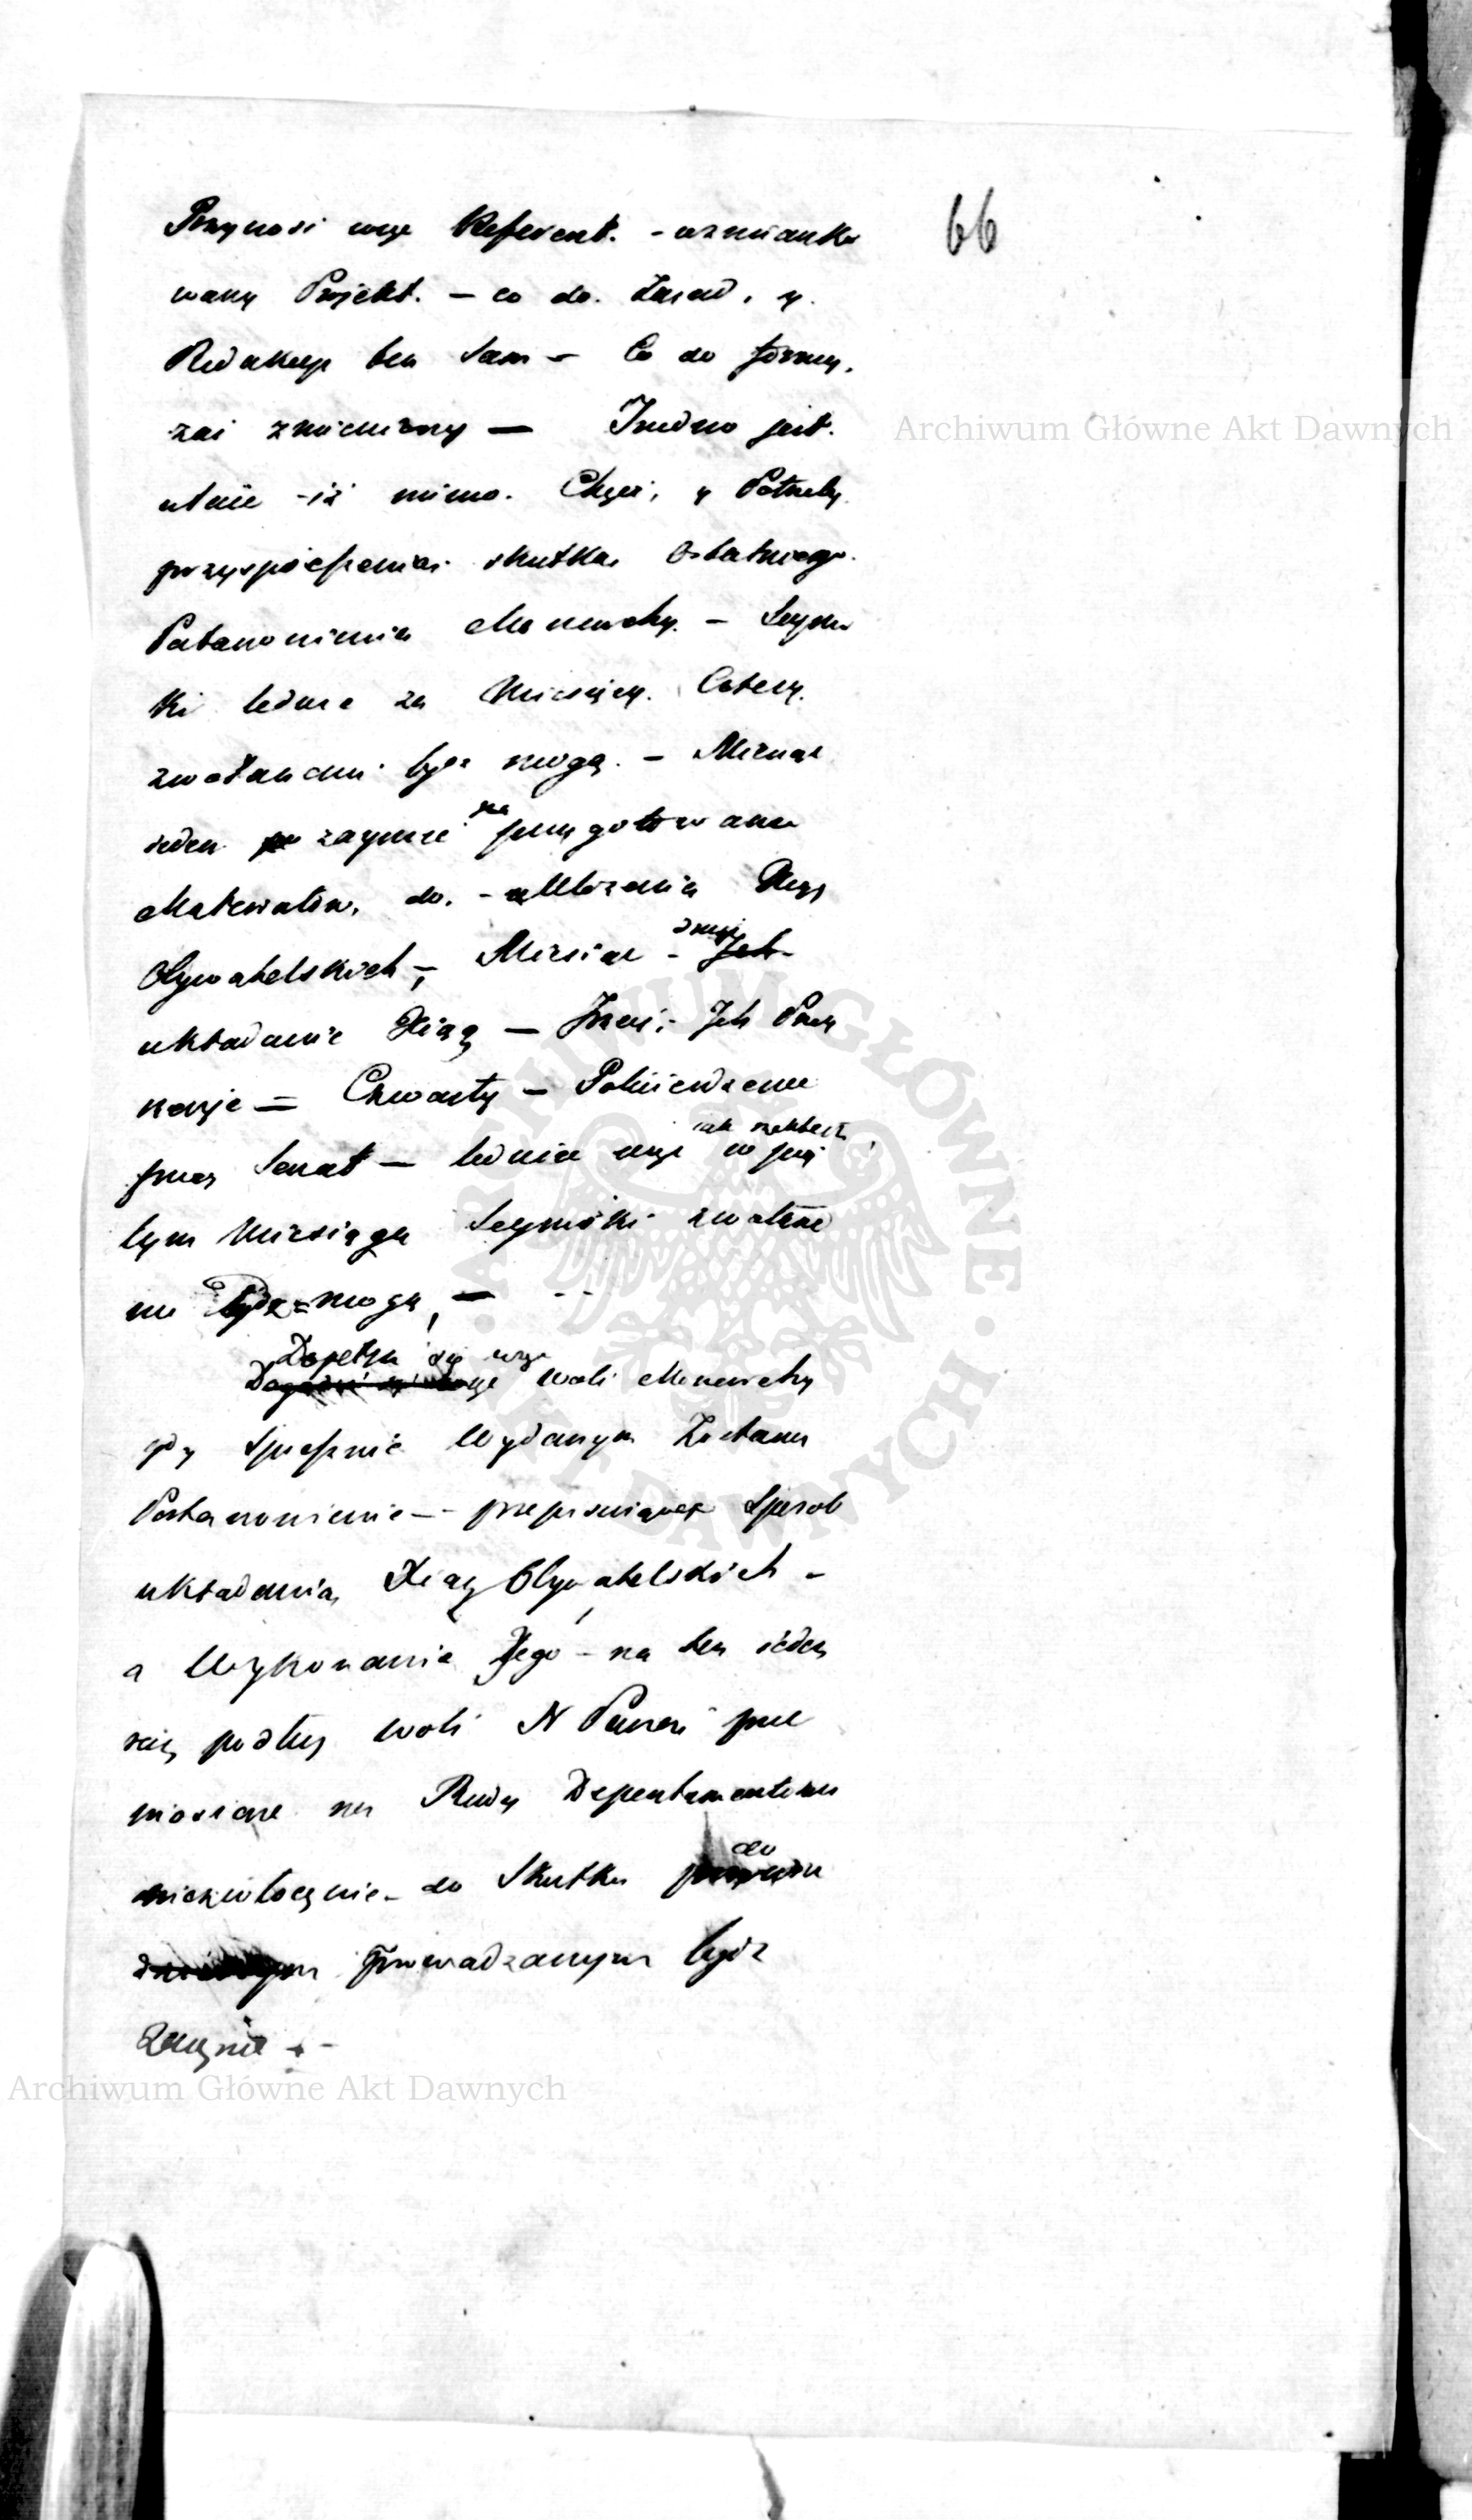 Przynosi więc Referent. - wzmianko
wany Projekt. – co do. Zasad. y.
Redakcyi ten sam – Co do formy,
zaś zmieniony — Trudno jest.
utaić - iż mimo. Chęci, y Potrzeby
przyspieszenia skutku Ostatniego.
Postanowienia Monarchy. – Seymi
ki ledwie za Miesięcy. Cztery.
zwołanemi bydź mogą. – Miesiąc
ieden zaymie na przygotowanie
Materiałów, do. - ułożenia Xiąg
Obywatelskich –, Miesiąc - drugi
układanie Xiąg — Trzeci - Ich Popra
Czwarty – Potwierdzenie
przez Senat — ledwie więc w pią
tym Miesiącu Seymiki zwołane
mi bydź mogą, —
Dopełni się więc woli Monarchy
gdy spiesznie Wydanym Zostanie
Postanowienie – przepisuiące Sposób
układania Xiąg Obywatelskich –
a Wykonanie Jego – na ten ieden
raz podług woli N Pana prze
niesione na Rady Departamentowe
niezwłocznie – do Skutku do
prowadzonym bydź
zacznie –
66
Archiwum Główne Akt Dawnych
ARCHIWUM GŁÓWNE AKT DAWNYCH
Archiwum Główne Akt Dawnych